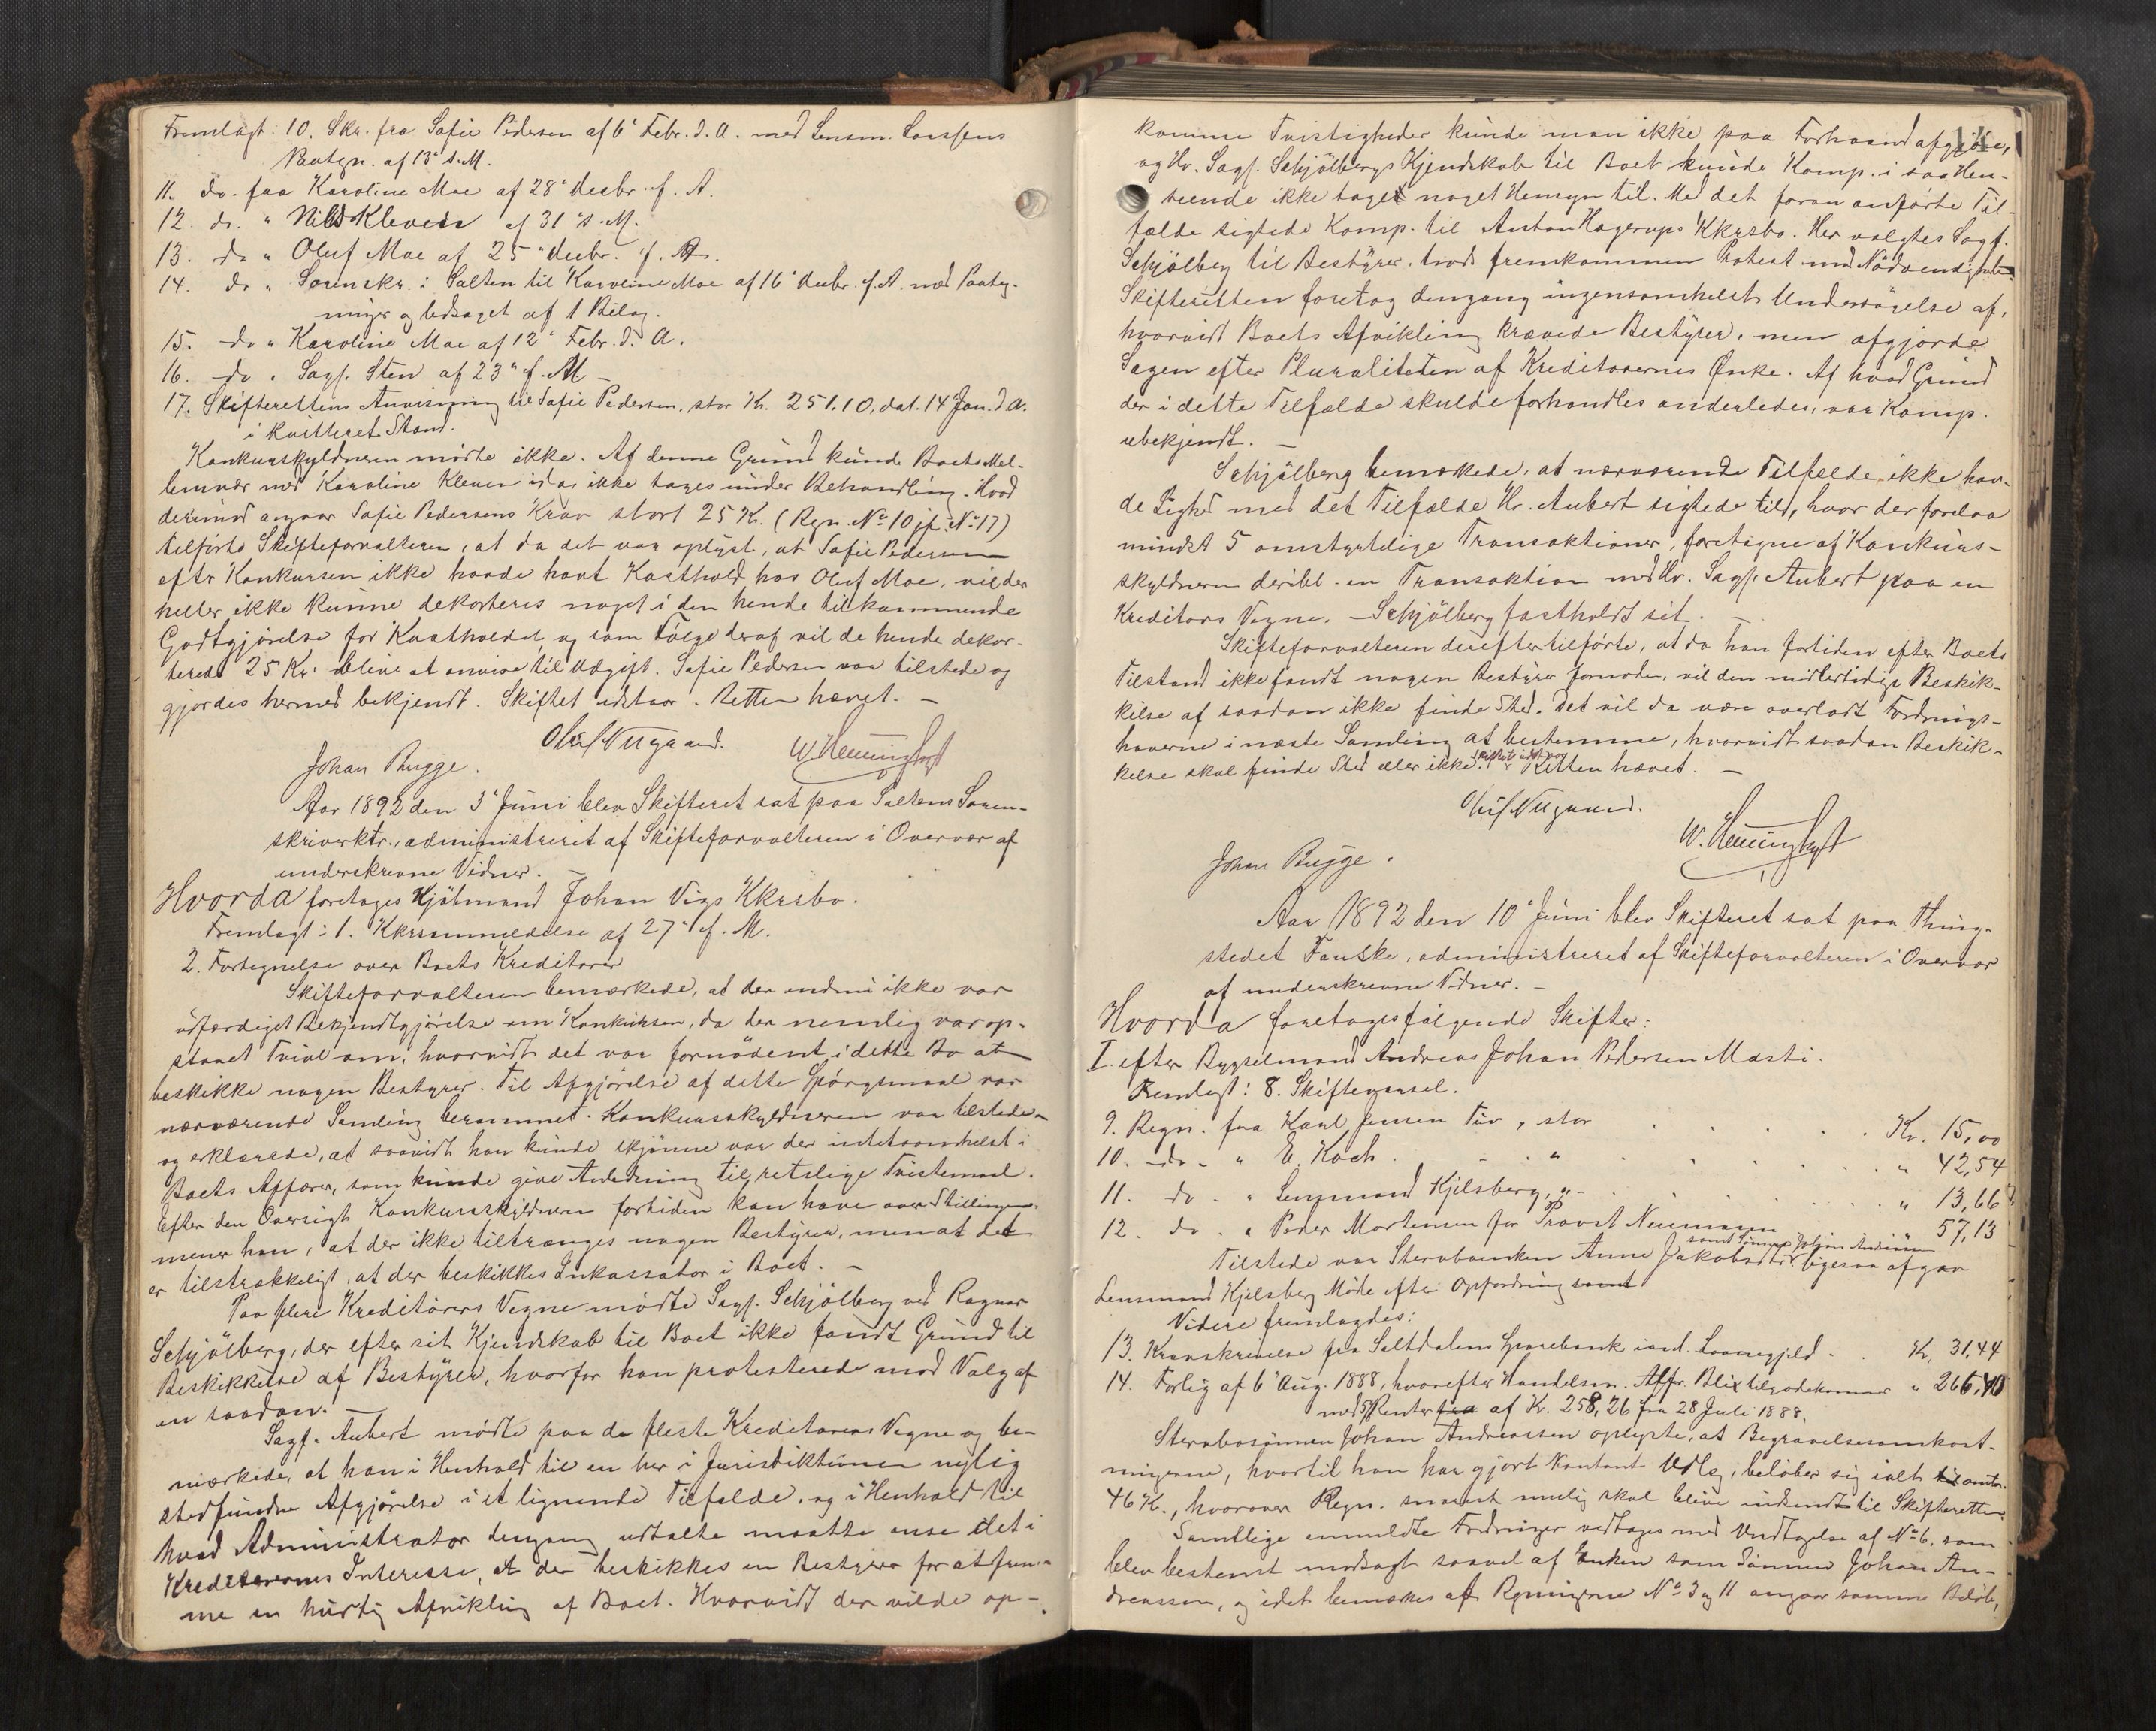 Fremlagt: 10. Skr. fra Sofie Pedersen af 6' Febr. d. A. med Lensm. Larssens
Paategn. af 13' s. M.
11. do. fra Karoline Moe af 28' Decbr. f. A.
12. do. " Nils Kleven af 31' s. M.
13. do " Oluf Moe af 25' Decbr. f. A.
14. do " Sorenskr. i Salten til Karoline Moe af 16' Decbr. f. A. med Paateg-
ninger og ledsaget af 1 Bilag.
15. do " Karoline Moe af 12' Febr. d. A.
16. do " Sagf. Sten af 23' f. M.
17. Skifterettens Anvisning til Sofie Pedersen, stor Kr. 251.10, dat. 14 Jan. d. A.
i kvitteret Stand.
Konkursskyldneren mødte ikke. Af denne Grund kunde Boets Mel-
lemvær med Karoline Kleven ikke tages under Behandling. Hvad
derimod angaar Sofie Pedersens Krav stort 25 Kr. (Regn. No 10 jf. No 17)
tilførte Skifteforvalteren, at da det var oplyst, at Sofie Pedersen
efter Konkursen ikke havde havt Kosthold hos Oluf Moe, vil der
heller ikke kunne dekorteres noget i den hende tilkommende
Godtgjørelse for Kostholdet, og som Følge deraf vil de hende dekor-
terede 25 Kr. blive at anvise til Udgift. Sofie Pedersen var tilstede og
gjordes hermed bekjendt. Skiftet udstaar. Retten hævet. –
Oluf Nygaard.
Johan Bugge.
Aar 1892 den 3' Juni blev Skifteret sat paa Saltens Soren-
skriverktr., administreret af Skifteforvalteren i Overvær af
underskrevne Vidner.
Hvorda foretages Kjøbmand Johan Vigs Kkrsbo.
Fremlagt: 1. Kkrsanmeldelse af 27' f. M.
2. Fortegnelse over Boets Kreditorer
Skifteforvalteren bemærkede, at der endnu ikke var
udfærdiget Bekjendtgjørelse om Konkursen, da der nemlig var op-
staaet Tvivl om, hvorvidt det var fornødent i dette Bo at
beskikke nogen Bestyrer. Til Afgjørelse af dette Spørgsmaal var
nærværende Samling berammet. Konkursskyldneren var tilstede
og erklærede, at saavidt han kunde skjønne var der intetsomhelst i
Boets Affærer, som kunde give Anledning til retslige Tvistemaal.
Efter den Oversigt Konkursskyldneren fortiden kan have over Stillingen,
mener han, at der ikke tiltrænges nogen Bestyrer, men at det
er tilstrækkeligt, at der beskikkes Inkassator i Boet. –
Paa flere Kreditorers Vegne mødte Sagf. Schjølberg ved Ragnar
Schjølberg, der efter sit Kjendskab til Boet ikke fandt Grund til
Beskikkelse af Bestyrer, hvorfor han protesterede mod Valg af
en saadan. –
Sagf. Aubert mødte paa de fleste Kreditorers Vegne og be-
mærkede, at han i Henhold til en her i Jurisdiktionen nylig
stedfunden Afgjørelse i et lignende Tilfælde, og i Henhold til
hvad Administrator dengang udtalte maatte anse det i
Kreditorernes Interesse, at der beskikkes en Bestyrer for at frem-
me en hurtig Afvikling af Boet. Hvorvidt der vilde op-
komme Tvistigheder kunde man ikke paa Forhaand afgjøre,
og Hr. Sagf. Schjølbergs Kjendskab til Boet kunde Komp. i saa Hen-
seende ikke taget noget Hensyn til. Med det foran anførte Til-
fælde sigtede Komp. til Anton Hagerups Kkrsbo. Her valgtes Sagf.
Schjølberg til Bestyrer, trods fremkommen Protest mod Nødvendigheden
Skifteretten foretog dengang ingensomhelst Undersøgelse af,
hvorvidt Boets Afvikling krævede Bestyrer, men afgjorde
Sagen efter Pluraliteten af Kreditorernes Ønske. Af hvad Grund
der i dette Tilfælde skulde forhandles anderledes, var Komp.
ubekjendt. –
Schjølberg bemærkede, at nærværende Tilfælde ikke hav-
de Lighed med det Tilfælde Hr. Aubert sigtede til, hvor der forelaa
mindst 5 omstyrtelige Transaktioner, foretagne af Konkurs-
skyldneren deribl. en Transaktion med Hr. Sagf. Aubert paa en
Kreditors Vegne. – Schjølberg fastholdt sit. –
Skifteforvalteren derefter tilførte, at da han fortiden efter Boets
Tilstand ikke fandt nogen Bestyrer fornøden, vil den midlertidige Beskik-
kelse af saadan ikke finde Sted. Det vil da være overladt Fordrings-
haverne i næste Samling at bestemme, hvorvidt saadan Beskik-
kelse skal finde Sted eller ikke. Skiftet udstaar Retten hævet. –
Oluf Nygaard.
Johan Bugge.
Aar 1892 den 10' Juni blev Skifteret sat paa Thing-
stedet Fauske, administreret af Skifteforvalteren i Overvær
af underskrevne Vidner. –
Hvorda foretages følgende Skifter:
I. efter Bygselmand Andreas Johan Pedersen Mæsti.
Fremlagt: 8. Skiftevarsel.
9. Regn. fra Karl Jensen Tuv, stor Kr. 15,00
10. do " E. Koch " " 42,54
11. do " Lensmand Kjelsberg, " " 13,66
12. do " Peder Mortensen for Provst Neumann " 57,13
Tilstede var Stervboenken Anne Jakobsdtr samt Sønnen Johan Andreassen ligesaa afgav
Lensmand Kjelsberg Møde efter Opfordring samt
Videre fremlagdes:
13. Kravskrivelse fra Saltdalens Sparebank iand. Laanegjeld Kr. 31,44
14. Forlig af 6' Aug. 1888, hvorefter Handelsm. Blix tilgodekommer " 266,40
med Renter fra af Kr. 258,26 fra 28 Juli 1888.
Stervbosønnen Johan Andreassen oplyste, at Begravelsesomkost-
ningerne, hvortil han har gjort kontant Udlæg, beløber sig ialt til omtr.
46 Kr., hvorover Regn. snarest mulig skal blive indsendt til Skifteretten.
Samtlige anmeldte Fordringer vedtages med Undtagelse af No 6, som
blev bestemt modsagt saavel af Enken som Sønnen Johan An-
dreassen, og idet bemærkes at Regningerne No 3 og 11 angaar samme Beløb,